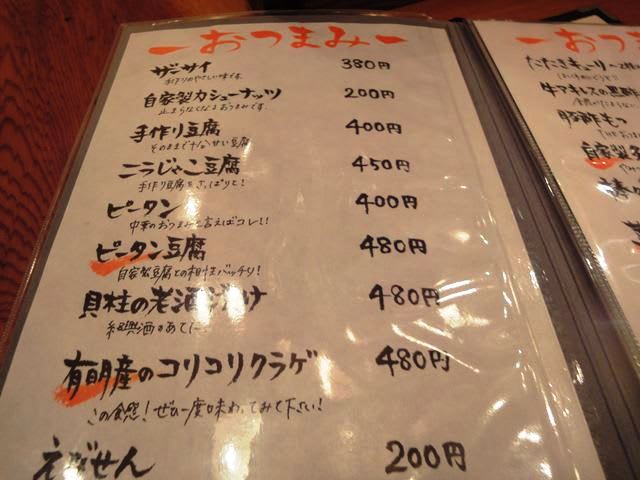 おつまみ
ザーサイ 380円
手作りのやさしい味です。
自家製カシューナッツ 200円
止まらなくなるおつまみです。
手作り豆腐 400円
そのままで十分なぜい豆腐
ニラじゃこ豆腐 450円
手作り豆腐をさっぱりと!
ピータン 400円
中華のおつまみと言えばコレ!!
ピータン豆腐 480円
自家製豆腐との相性バッチリ!
貝柱の老酒漬け 480円
紹興酒のあてに
有明産のコリコリクラゲ 480円
この食感!ぜひ一度味わってみて下さい!
えびせん 200円
おつまみ
たたきキューリ
牛マキレスの黒酢
自家製